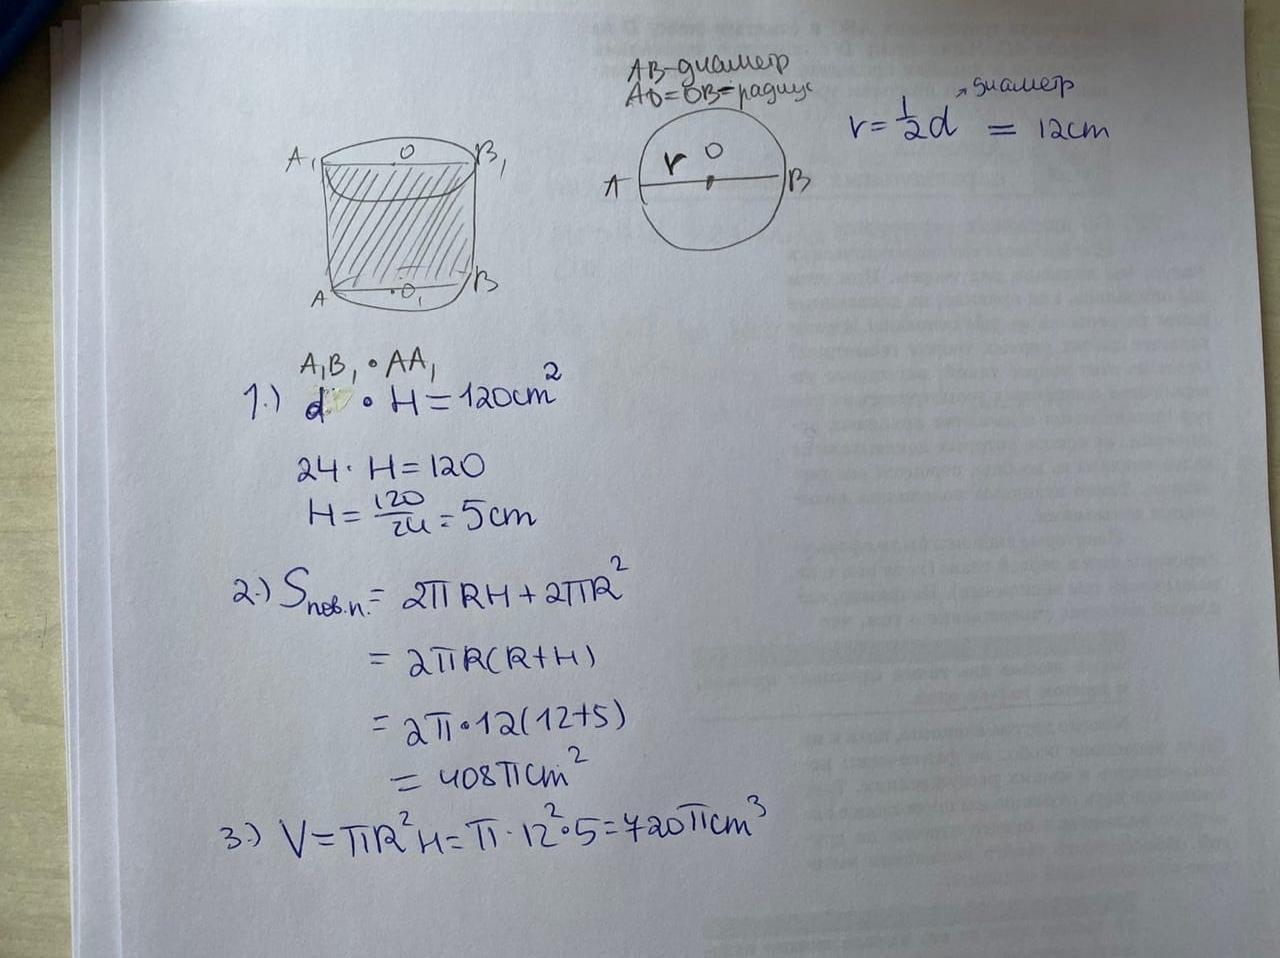 AB-диаметр
AO=OB=радиус
r=½d = 12cm
диаметр
A₁ O B₁
r O
A B
A O₁ B
A₁B₁ • AA₁
1.) d • H = 120cm²
24 • H = 120
H = 120/24 = 5cm
2.) Sпов.п. = 2πRH + 2πR²
= 2πR(R+H)
= 2π•12(12+5)
= 408πcm²
3.) V = πR²H = π • 12² • 5 = 720πcm³